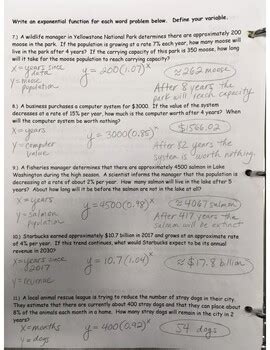 Write an exponential function for each word problem below. Define your variable.
7.) A wildlife manager in Yellowstone National Park determines there are approximately 200
moose in the park. If the population is growing at a rate 7% each year, how many moose will
live in the park after 4 years? If the carrying capacity of this park is 350 moose, how long
will it take for the moose population to reach carrying capacity?
x = years since data
y = moose population
y = 200(1.07)^x
≈ 262 moose
After 8 years the park will reach capacity.
8.) A business purchases a computer system for $3000. If the value of the system
decreases at a rate of 15% per year, how much is the computer worth after 4 years? When
will the computer system be worth nothing?
x = years
y = computer value
y = 3000(0.85)^x
$1566.02
After 82 years the system is worth nothing.
9.) A fisheries manager determines that there are approximately 4500 salmon in Lake
Washington during the high season. A scientist informs the manager that the population is
decreasing at a rate of about 2% per year. How many salmon will live in the lake after 5
years? About how long will it be before the salmon are not in the lake at all?
x = years
y = salmon population
y = 4500(0.98)^x
≈ 4067 salmon
After 417 years the salmon will be extinct
10.) Starbucks earned approximately $10.7 billion in 2017 and grows at an approximate rate
of 4% per year. If this trend continues, what would Starbucks expect to be its annual
revenue in 2030?
x = years since 2017
y = revenue
y = 10.7(1.04)^x
≈ $17.8 billion
11.) A local animal rescue league is trying to reduce the number of stray dogs in their city.
They estimate that there are currently about 400 stray dogs and that they can place about
8% of the animals each month in a home. How many stray dogs will remain in the city in 2
years?
x = months
y = dogs
y = 400(0.92)^x
54 dogs